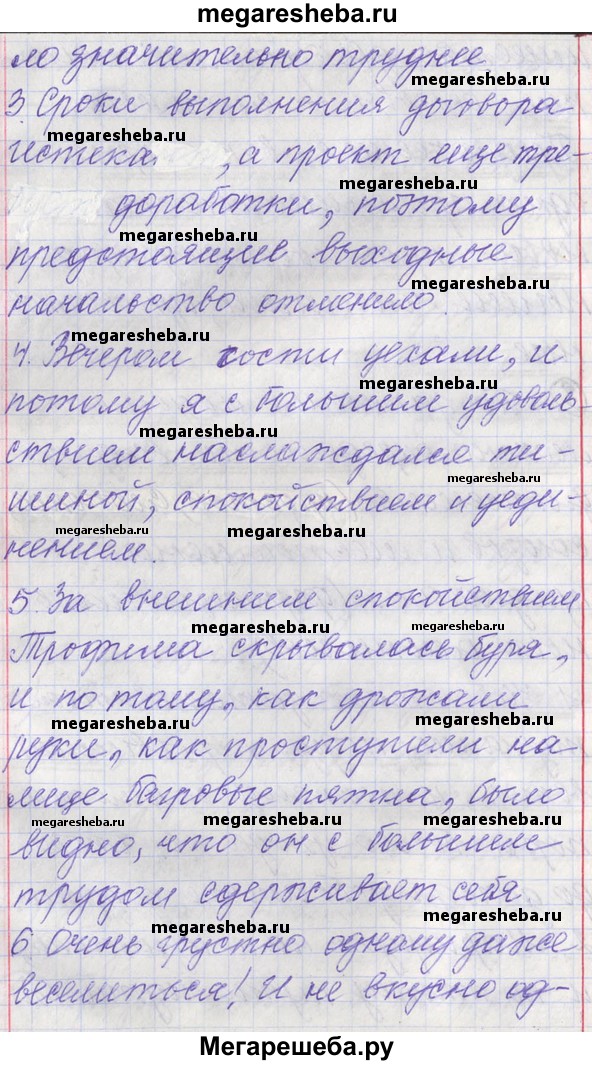 megaresheba.ru
ло значительно труднее
megaresheba.ru
3. Сроки выполнения договора
megaresheba.ru megaresheba.ru
истека , а проект еще тре-
megaresheba.ru
доработки, поэтому
megaresheba.ru
предстоящие выходные
megaresheba.ru
начальство отменило.
megaresheba.ru
4. Вечером гости уехали, и
megaresheba.ru
потому я с большим удоволь-
megaresheba.ru
ствием наслаждался ти-
megaresheba.ru
шиной, спокойствием и уеди-
megaresheba.ru megaresheba.ru
нением.
5. За внешним спокойствием
megaresheba.ru megaresheba.ru
Трофима скрывалась буря,
megaresheba.ru
и по тому, как дрожали
megaresheba.ru megaresheba.ru
руки, как проступили на
лице багровые пятна, было
megaresheba.ru megaresheba.ru megaresheba.ru
видно, что он с большим
трудом сдерживает себя
megaresheba.ru
6 Очень грустно одному даже
megaresheba.ru
веселиться! И не вкусно од-
Мегарешеба.ру